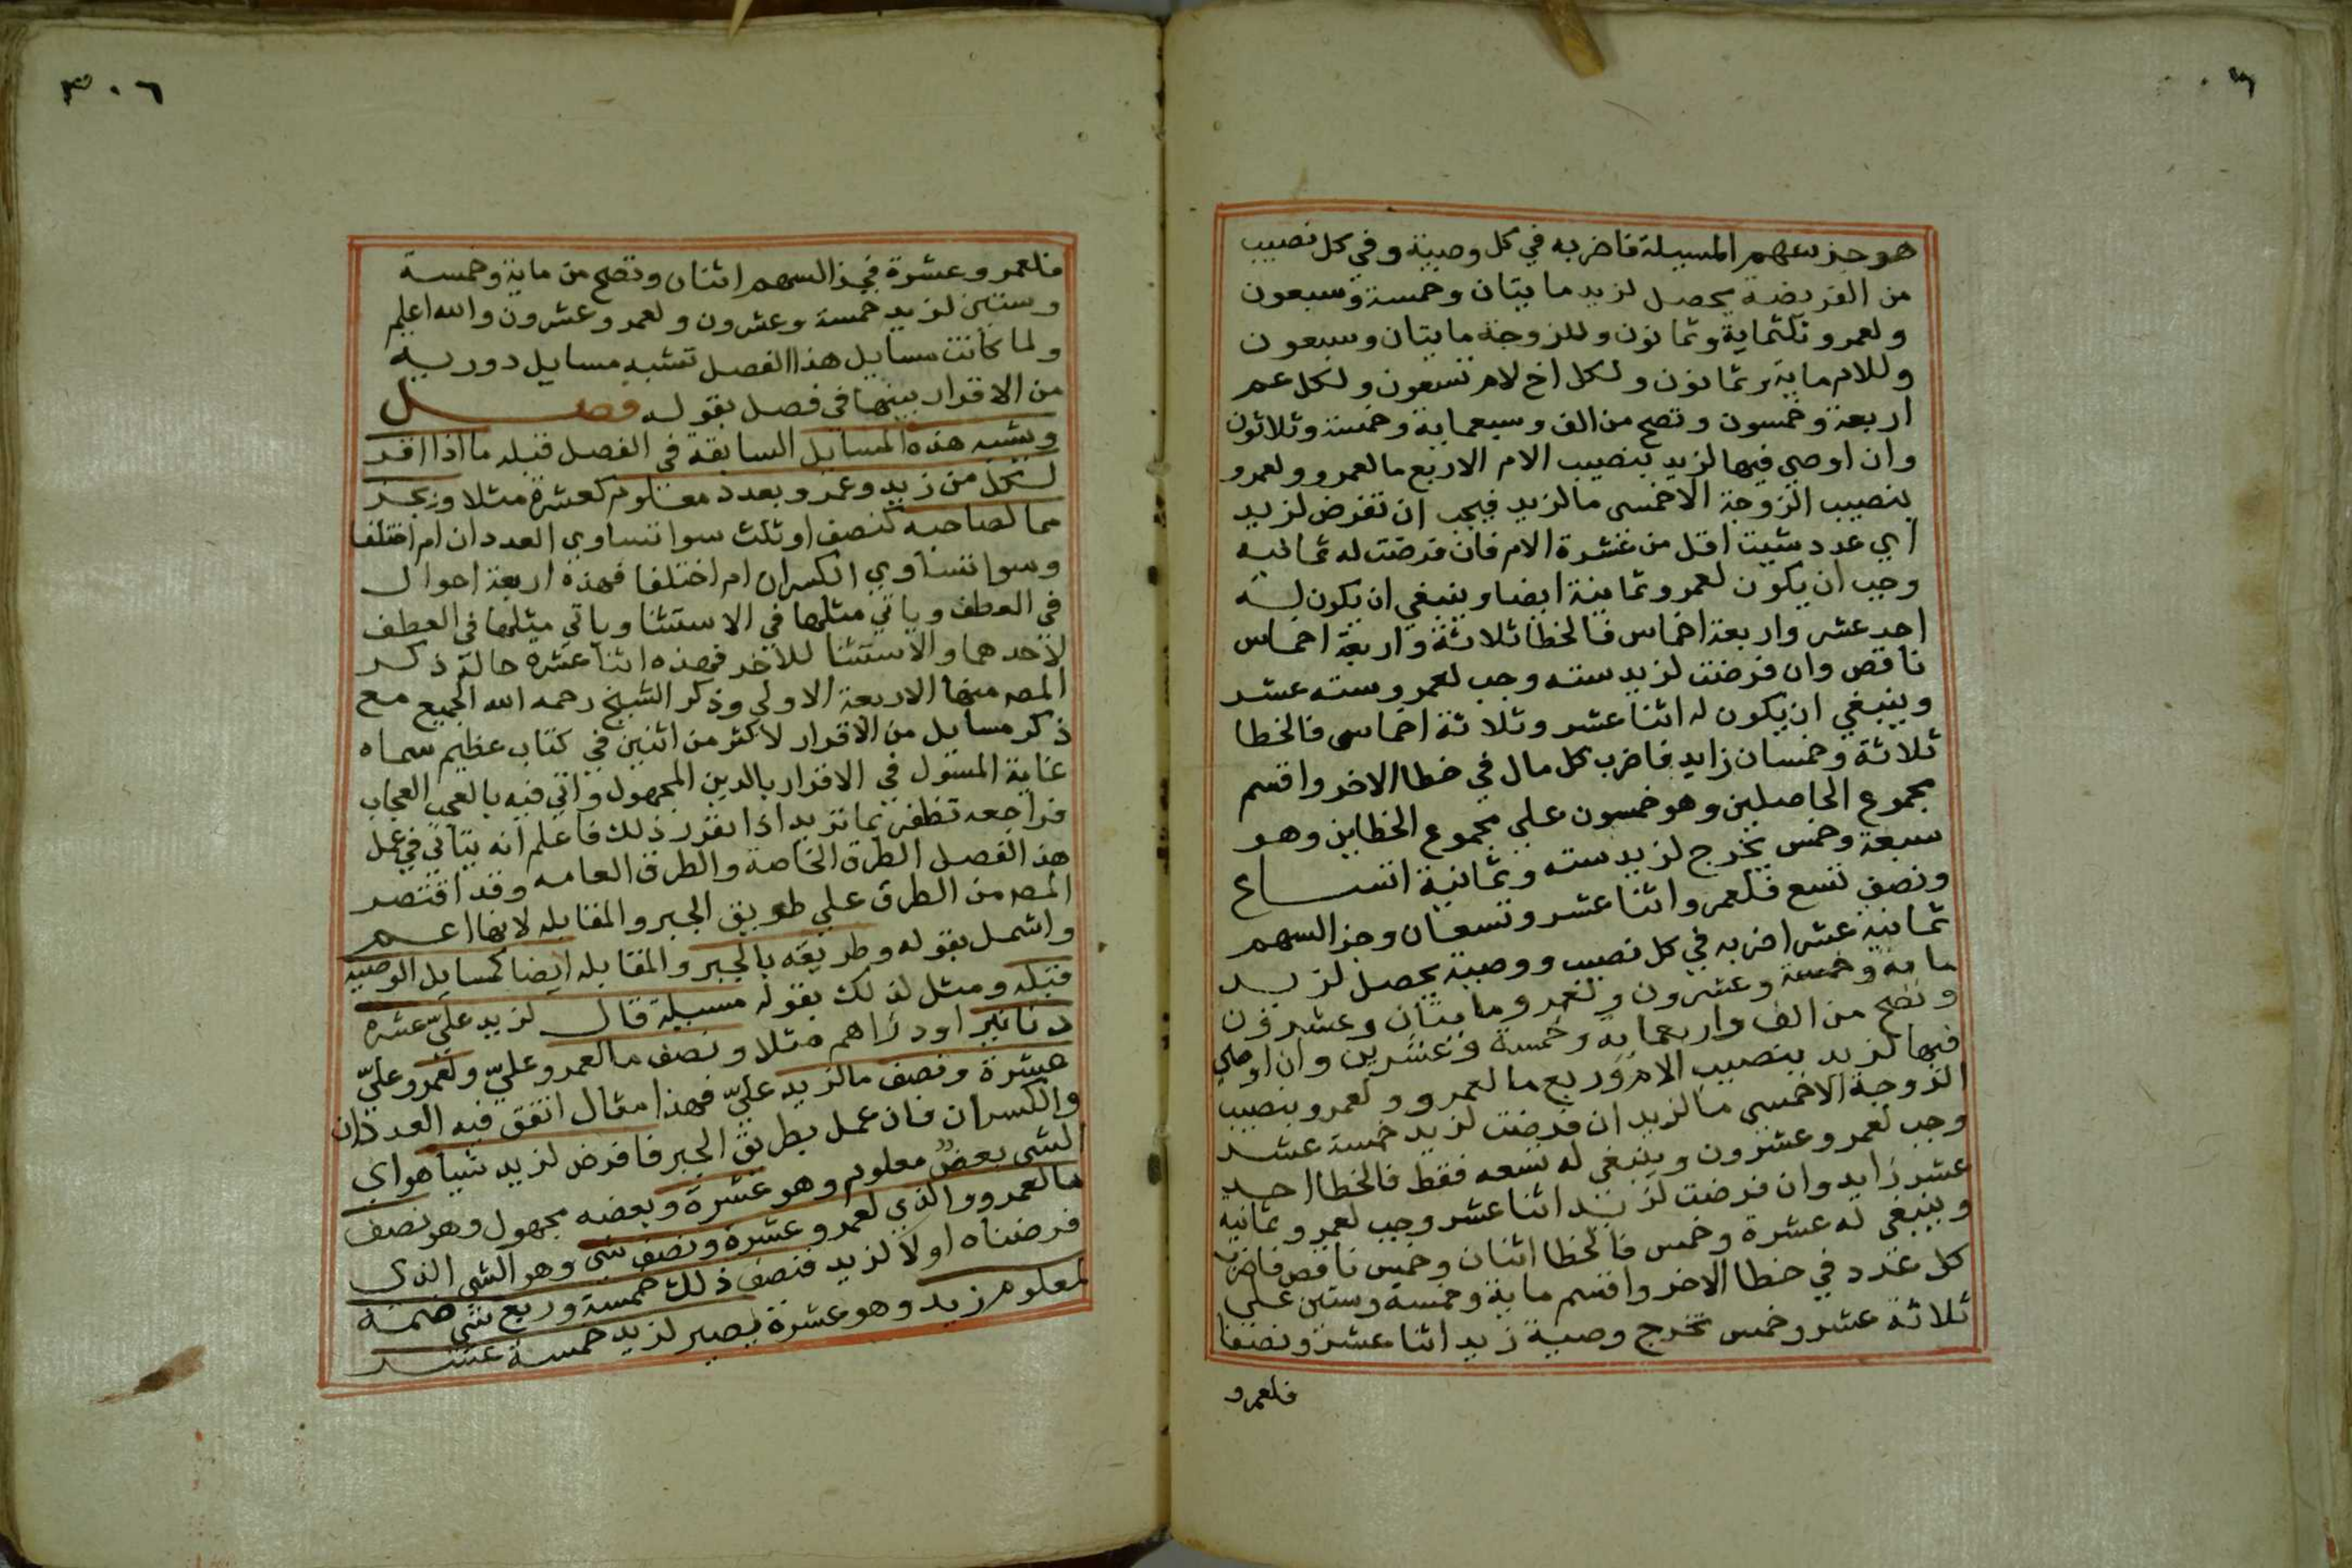 هو جز سهم المسيلة فاضربه في كل وصية وفي كل نصيب
من الفريضة يحصل لزيد مايتان وخمسة وسبعون
ولعمرو ثلثماية وثمانون وللزوجة مايتان وسبعون
وللام ماية وثمانون ولكل اخ لام تسعون ولكل عم
اربعة وخمسون وتصح من الف وسبعماية وخمسة وثلاثون
وان اوصي فيها لزيد بنصيب الام الا ربع ما لعمرو ولعمرو
بنصيب الزوجة الا خمسي ما لزيد فيجب ان تفرض لزيد
اي عدد شيت اقل من عشرة الام فان فرضت له ثمانية
وجب ان يكون لعمرو ثمانية ايضا وينبغي ان يكون له
احد عشر واربعة اخماس فالخطا ثلاثة واربعة اخماس
ناقص وان فرضت لزيد ستة وجب لعمرو ستة عشر
وينبغي ان يكون له اثنا عشر وثلاثة اخماس فالخطا
ثلاثة وخمسان زايد فاضرب كل مال في خطا الاخر واقسم
مجموع الحاصلين وهو خمسون علي مجموع الخطاين وهو
سبعة وخمس يخرج لزيد ستة وثمانية اتساع
ونصف تسع فلعمرو اثنا عشر وتسعان وجز السهم
ثمانية عشر اضربه في كل نصيب ووصية يحصل لزيد
ماية وخمسة وعشرون ولعمرو مايتان وعشرون
وتصح من الف واربعماية وخمسة وعشرين وان اوصي
فيها لزيد بنصيب الام وربع ما لعمرو ولعمرو بنصيب
الزوجة الا خمسي ما لزيد ان فرضت لزيد خمسة عشر
وجب لعمرو عشرون وينبغي له تسعه فقط فالخطا احد
عشر زايد وان فرضت لزيد اثنا عشر وجب لعمرو ثمانية
وينبغي له عشرة وخمس فالخطا اثنان وخمس ناقص فاضرب
كل عدد في خطا الاخر واقسم ماية وخمسة وستين علي
ثلاثة عشر وخمس تخرج وصية زيد اثنا عشر ونصفا
فلعمرو
٣٠٦
فلعمرو عشرة فجز السهم اثنان وتصح من ماية وخمسة
وستين لزيد خمسة وعشرون ولعمرو عشرون والله اعلم
ولما كانت مسايل هذا الفصل تشبه مسايل دورية
من الاقرار بينها في فصل بقوله فصل
ويشبه هذه المسايل السابقة في الفصل قبله ما اذا اقر
لكل من زيد وعمرو بعدد معلوم كعشرة مثلا وبجز
مما لصاحبه كنصف او ثلث سوا تساوي العددان ام اختلفا
وسوا تساوي الكسران ام اختلفا فهذه اربعة احوال
في العطف وياتي مثلها في الاستثنا وياتي مثلها في العطف
لاحدهما والاستثنا للاخر فهذه اثنا عشرة حالة ذكر
المصه منها الاربعة الاولي وذكر الشيخ رحمه الله الجميع مع
ذكر مسايل من الاقرار لاكثر من اثنين في كتاب عظيم سماه
غاية السول في الاقرار بالدين المجهول واتي فيه بالعجب العجاب
فراجعه تظفر بما تريد اذا تقرر ذلك فاعلم انه يتاتي في عمل
هذا الفصل الطرق الخاصة والطرق العامه وقد اقتصر
المصه من الطرق علي طريق الجبر والمقابله لانها اعم
واشمل بقوله وطريقه بالجبر والمقابله ايضا كمسايل الوصية
قبله ومثل لذلك بقوله مسيلة قال لزيد عليّ عشرة
دنانير او دراهم مثلا ونصف ما لعمرو عليّ ولعمرو عليّ
عشرة ونصف ما لزيد عليّ فهذا مثال اتفق فيه العددان
والكسران فان عمل بطريق الجبر فافرض لزيد شيا هو اي
الشي بعضه معلوم وهو عشرة وبعضه مجهول وهو نصف
ما لعمرو والذي لعمرو عشرة ونصف شي وهو الشي الذي
فرضناه اولا لزيد فنصف ذلك خمسة وربع شي ضمه
لمعلوم زيد وهو عشرة يصير لزيد خمسة عشر